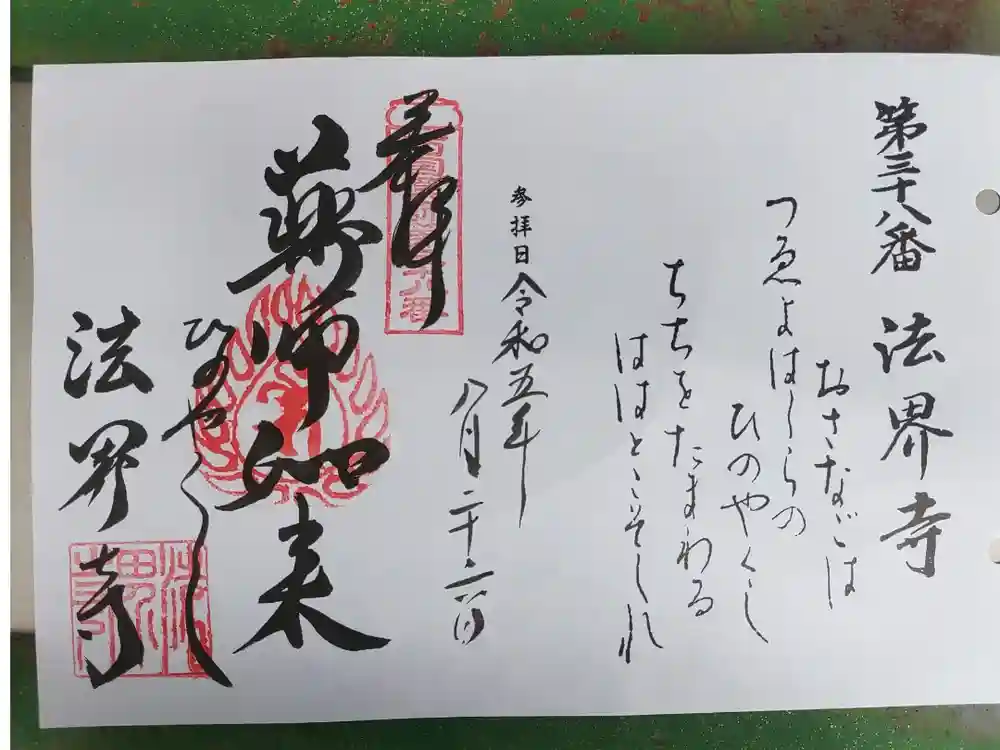 第三十八番 法界寺
おさなごは
つゑよはしらの
ひのやくし
ちちをたまわる
ははとこそしれ
参拝日 令和五年
八月二十
奉拝
薬師如来
ひのやくし
法界寺
法界寺